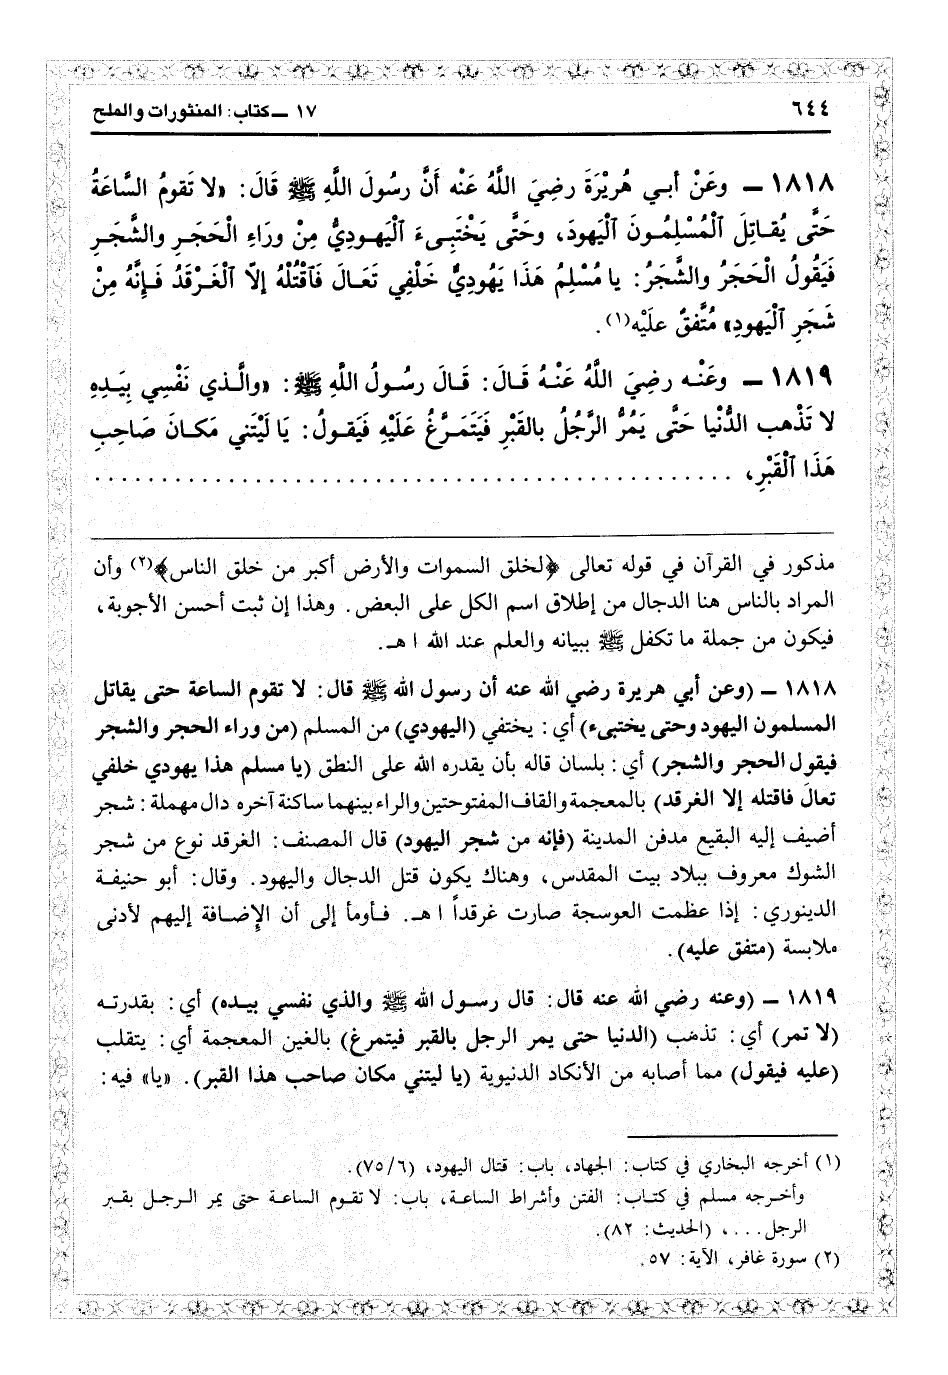 ٦٤٤ ١٧ ــ كتاب: المنثورات والملح
١٨١٨ ــ وعَنْ أبـي هُرَيْرَةَ رضِيَ اللَّهُ عَنْه أَنَّ رسُولَ اللَّهِ ﷺ قَالَ: «لا تَقومُ السَّاعَةُ
حَتَّى يُقـاتِلَ ٱلْمُسْلِمُـونَ ٱلْيَهودَ، وحَتَّى يَخْتَبِـىءَ ٱلْيَهـودِيُّ مِنْ ورَاءِ الْحَجَـرِ والشَّجَرِ
فَيَقُولُ الْحَجَرُ والشَّجَرُ: يا مُسْلِمُ هَذَا يَهُودِيٌّ خَلْفِي تَعَـالَ فَٱقْتُلْهُ إلاّ ٱلْغَـرْقَدَ فَـإِنَّهُ مِنْ
شَجَرِ ٱلْيَهودِ» مُتَّفقٌ علَيْه(١).
١٨١٩ ــ وعَنْـه رضِيَ اللَّهُ عَنْـهُ قَـالَ: قَـالَ رسُـولُ اللَّهِ ﷺ: «والَّـذي نَفْسِي بِيَـدِهِ
لا تَذْهب الدُّنْيا حَتَّى يَمُرَّ الرَّجُلُ بالقَبْرِ فَيَتَمَـرَّغُ عَلَيْهِ فَيَقـولُ: يَا لَيْتَني مَكـانَ صَاحِبِ
هَذَا ٱلْقَبْرِ، . . . . . . . . . . . . . . . . . . . . . . . . . . . . . . . . . . . . . . . . . . . . . . . .
مذكور في القرآن في قوله تعالى ﴿لخلق السموات والأرض أكبر من خلق الناس﴾(٢) وأن
المراد بالناس هنا الدجال من إطلاق اسم الكل على البعض. وهذا إن ثبت أحسن الأجوبة،
فيكون من جملة ما تكفل ﷺ ببيانه والعلم عند الله ا هـ.
١٨١٨ ــ (وعن أبي هريرة رضي الله عنه أن رسول الله ﷺ قال: لا تقوم الساعة حتى يقاتل
المسلمون اليهود وحتى يختبىء) أي: يختفي (اليهودي) من المسلم (من وراء الحجر والشجر
فيقول الحجر والشجر) أي: بلسان قاله بأن يقدره الله على النطق (يا مسلم هذا يهودي خلفي
تعالَ فاقتله إلا الغرقد) بالمعجمة والقاف المفتوحتين والراء بينهما ساكنة آخره دال مهملة: شجر
أضيف إليه البقيع مدفن المدينة (فإنه من شجر اليهود) قال المصنف: الغرقد نوع من شجر
الشوك معروف ببلاد بيت المقدس، وهناك يكون قتل الدجال واليهود. وقال: أبو حنيفـة
الدينوري: إذا عظمت العوسجة صارت غرقداً ا هـ. فـأومأ إلى أن الإضـافة إليهم لأدنى
ملابسة (متفق عليه).
١٨١٩ ــ (وعنه رضي الله عنه قال: قال رسـول الله ﷺ والذي نفسي بيـده) أي: بقدرتـه
(لا تمر) أي: تذهب (الدنيا حتى يمر الرجل بالقبر فيتمرغ) بالغين المعجمة أي: يتقلب
(عليه فيقول) مما أصابه من الأنكاد الدنيوية (يا ليتني مكان صاحب هذا القبر). «يا» فيه:
(١) أخرجه البخاري في كتاب: الجهاد، باب: قتال اليهود، (٧٥/٦).
وأخـرجه مسلم في كتـاب: الفتن وأشراط الساعـة، باب: لا تقـوم الساعة حتى يمر الـرجـل بقـبر
الرجل....، (الحديث: ٨٢).
(٢) سورة غافر، الآية: ٥٧.